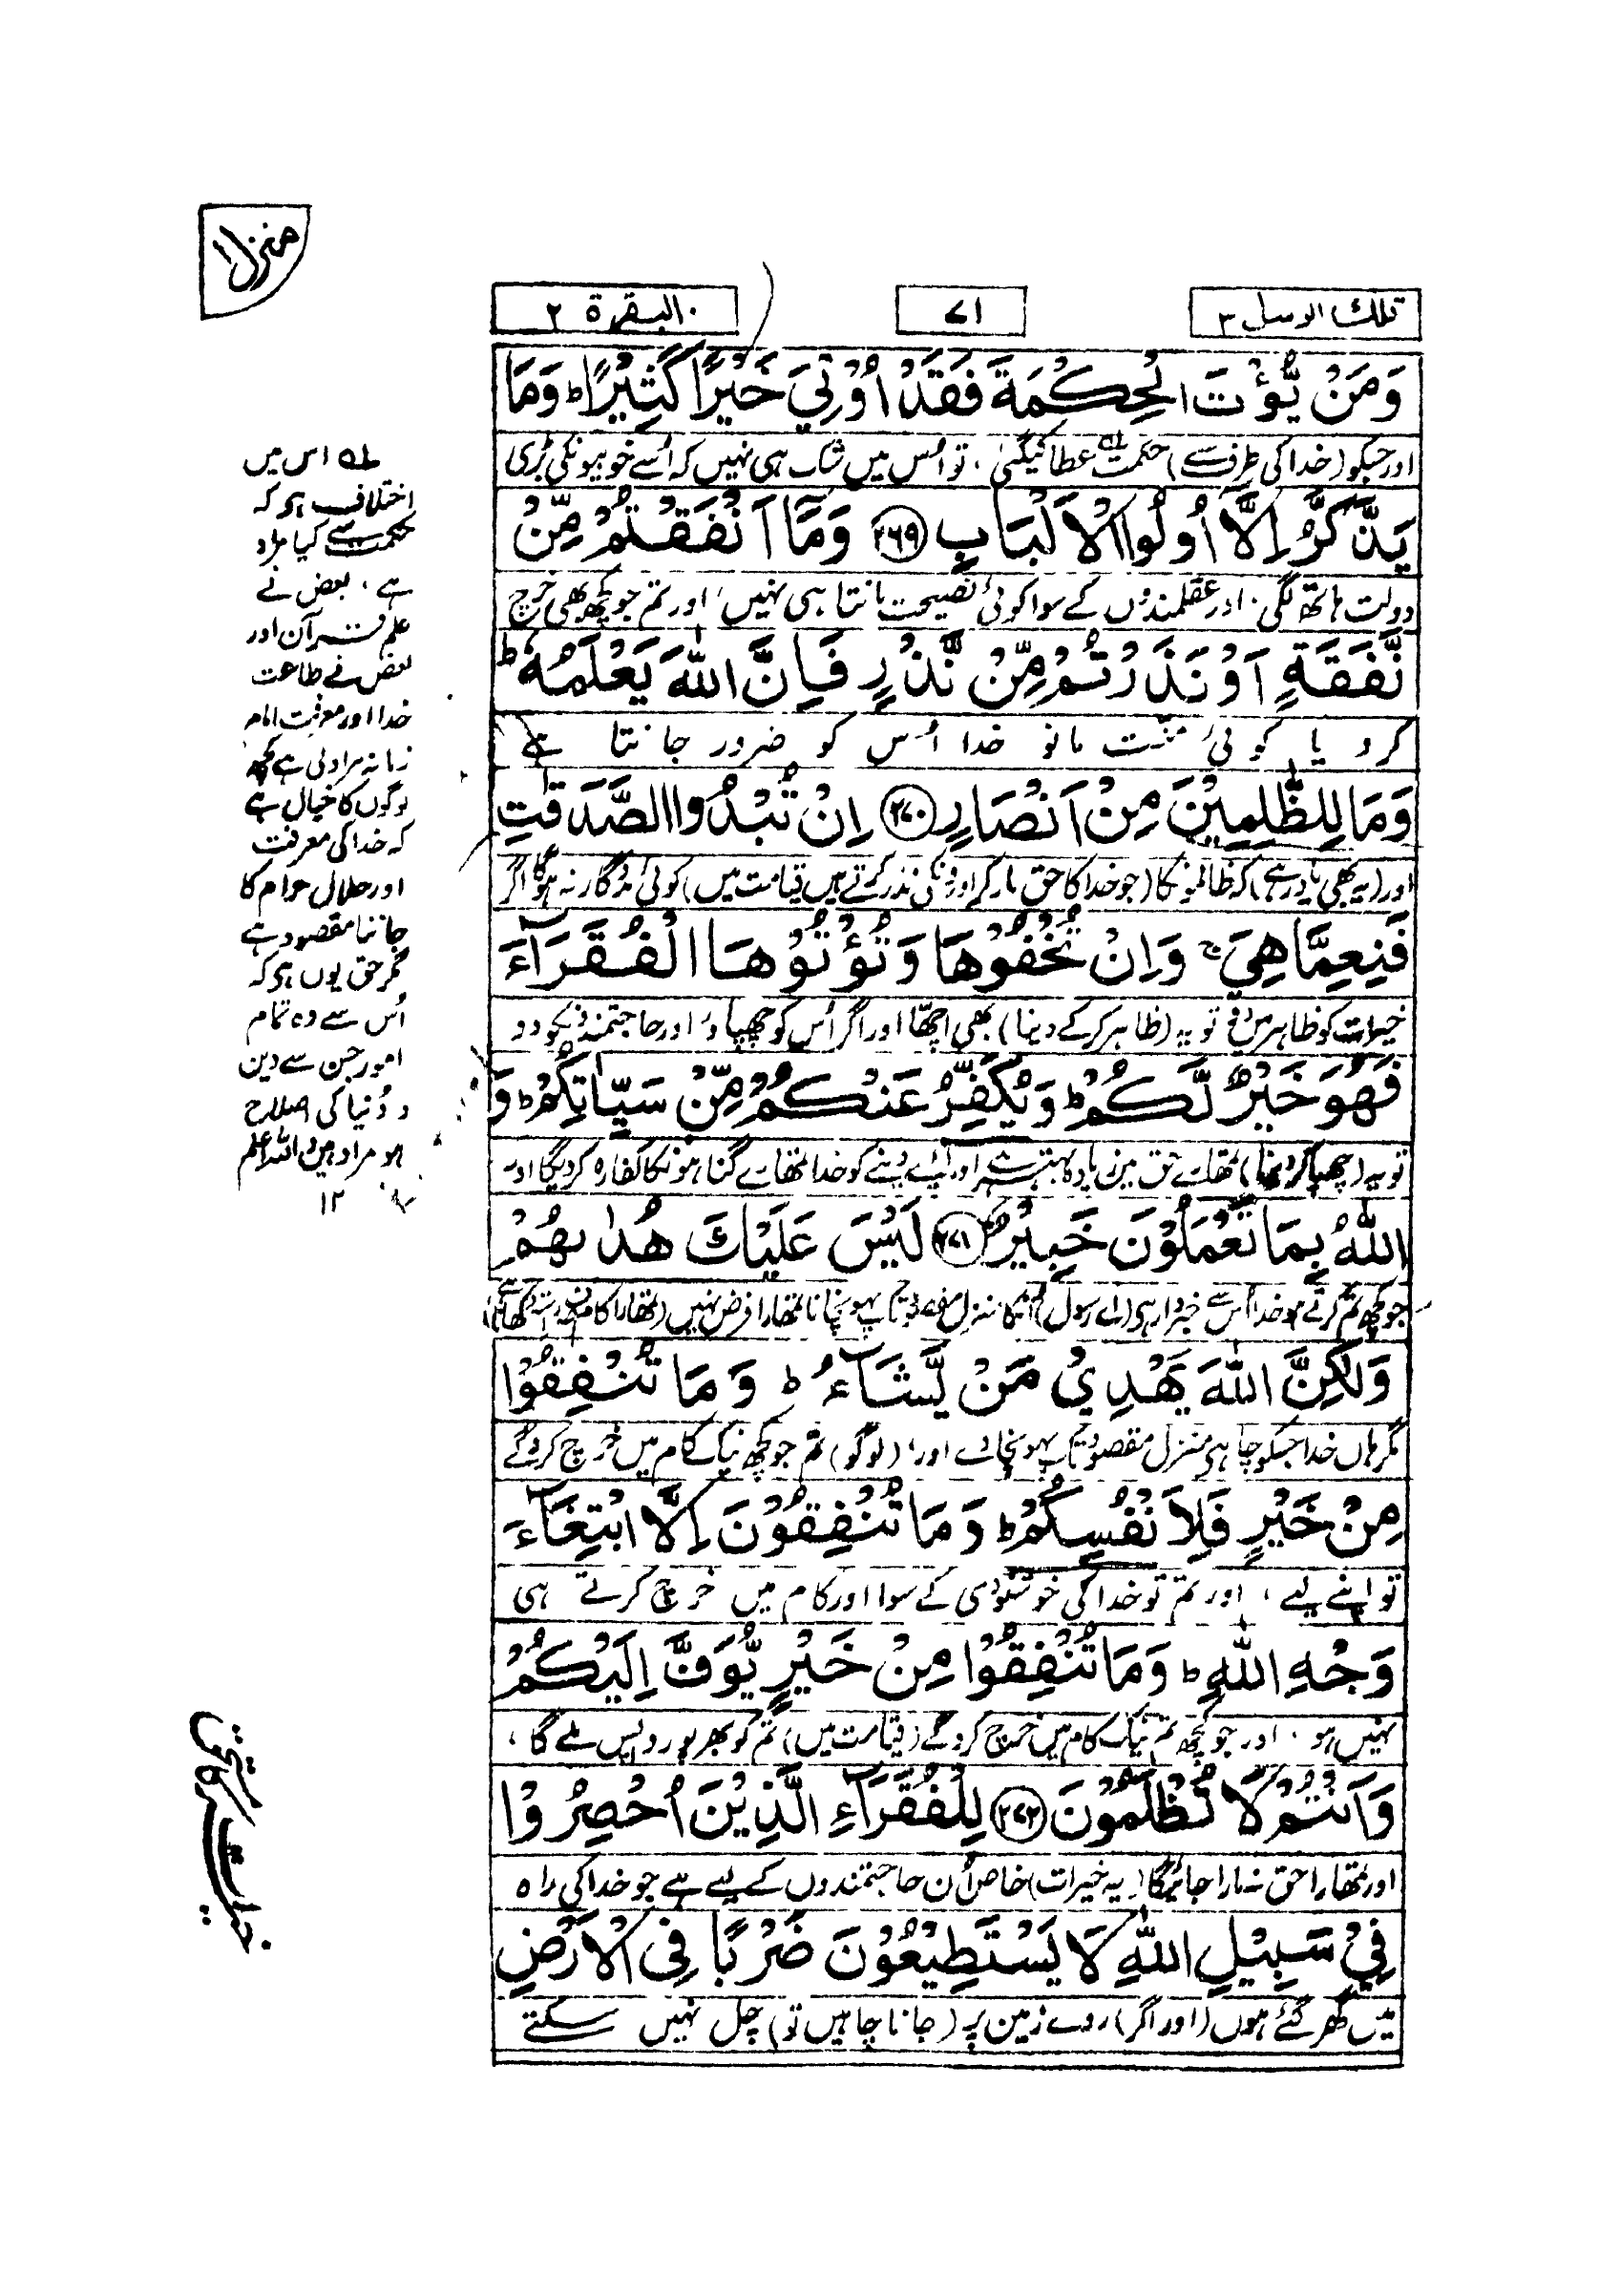 تلك الرسل ۳
۷۱
البقرة ۲
منزل۱
وَمَنْ يُّؤْتَ الْحِكْمَةَ فَقَدْ اُوْتِيَ خَيْرًا كَثِيْرًا ؕ وَمَا
اور جسکو (خدا کی طرف سے) حکمت ۱؎ عطا کیگئی، تو اُس میں شک ہی نہیں کہ اُسے خوبیونکی بڑی
يَذَّكَّرُ اِلَّا اُولُوا الْاَلْبَابِ ۲۶۹ وَمَا اَنْفَقْتُمْ مِّنْ
دولت ہاتھ لگی، اور عقلمندوں کے سوا کوئی نصیحت مانتا ہی نہیں، اور تم جو کچھ بھی خرچ
نَّفَقَةٍ اَوْ نَذَرْتُمْ مِّنْ نَّذْرٍ فَاِنَّ اللّٰهَ يَعْلَمُهٗ ؕ
کرو یا کوئی منّت مانو خدا اُس کو ضرور جانتا ہے
وَمَا لِلظّٰلِمِيْنَ مِنْ اَنْصَارٍ ۲۷۰ اِنْ تُبْدُوا الصَّدَقٰتِ
اور (یہ بھی یاد رہے) کہ ظالمونکا (جو خدا کا حق مار کر اورونکی نذر کرتے ہیں قیامت میں) کوئی مددگار نہ ہوگا اگر
فَنِعِمَّا هِيَ ۚ وَاِنْ تُخْفُوْهَا وَتُؤْتُوْهَا الْفُقَرَآءَ
خیرات کو ظاہر میں دو تو یہ (ظاہر کرکے دینا) بھی اچھا اور اگر اُس کو چھپاؤ اور حاجتمندونکو دو
فَهُوَ خَيْرٌ لَّكُمْ ؕ وَيُكَفِّرُ عَنْكُمْ مِّنْ سَيِّاٰتِكُمْ ؕ وَ
تو یہ (چھپا کر دینا) تمھارے حق میں زیادہ بہتر ہے اور ایسے دینے کو خدا تمھارے گناہونکا کفارہ کردیگا اور
اللّٰهُ بِمَا تَعْمَلُوْنَ خَبِيْرٌ ۲۷۱ لَيْسَ عَلَيْكَ هُدٰىهُمْ
جو کچھ تم کرتے ہو خدا اُس سے خبردار ہی (اے رسول) انکا منزل مقصود تک پہونچانا تمھارا فرض نہیں (تمھارا کام
وَلٰكِنَّ اللّٰهَ يَهْدِيْ مَنْ يَّشَآءُ ؕ وَمَا تُنْفِقُوْا
مگر ہاں خدا جسکو چاہی منزل مقصود تک پہونچادے اور، (لوگو) تم جو کچھ نیک کام میں خرچ کروگے
مِنْ خَيْرٍ فَلِاَنْفُسِكُمْ ؕ وَمَا تُنْفِقُوْنَ اِلَّا ابْتِغَآءَ
تو اپنے لیے، اور تم تو خدا کی خوشنودی کے سوا اور کام میں خرچ کرتے ہی
وَجْهِ اللّٰهِ ؕ وَمَا تُنْفِقُوْا مِنْ خَيْرٍ يُّوَفَّ اِلَيْكُمْ
نہیں ہو، اور جو کچھ تم نیک کام میں خرچ کروگے (قیامت میں) تم کو بھرپور واپس ملے گا،
وَاَنْتُمْ لَا تُظْلَمُوْنَ ۲۷۲ لِلْفُقَرَآءِ الَّذِيْنَ اُحْصِرُوْا
اور تمھارا حق نہ مارا جائیگا (یہ خیرات) خاص اُن حاجتمندوں کے لیے ہے جو خدا کی راہ
فِيْ سَبِيْلِ اللّٰهِ لَا يَسْتَطِيْعُوْنَ ضَرْبًا فِى الْاَرْضِ
میں گھر گئے ہوں (اور اگر) روے زمین پر (جانا چاہیں تو) چل نہیں سکتے
۱؎ اس میں
اختلاف ہی کہ
حکمت سے کیا مراد
ہے، بعض نے
علم قرآن اور
بعض نے طاعت
خدا اور معرفت امام
زمانہ مراد لی ہے کچھ
لوگوں کا خیال ہے
کہ خدا کی معرفت
اور حلال حرام کا
جاننا مقصود ہے
مگر حق یوں ہی کہ
اُس سے وہ تمام
امور جن سے دین
و دُنیا کی اصلاح
ہو مراد ہیں واللہ اعلم
۱۲
خیرات کے